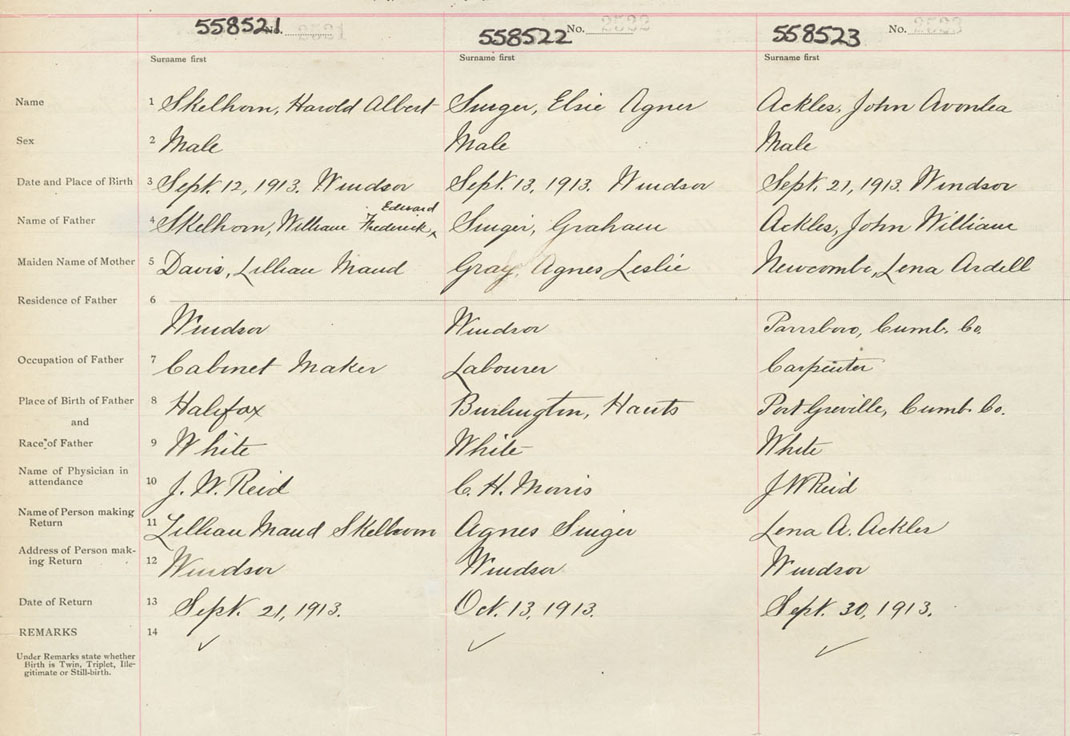 558521 No. 2521 558522 No. 2522 558523 No. 2523
Surname first Surname first Surname first
Name 1 Skelhorn, Harold Albert Singer, Elsie Agnes Ackles, John Avonlea
Sex 2 Male Male Male
Date and Place of Birth 3 Sept. 12, 1913. Windsor Sept. 13, 1913. Windsor Sept. 21, 1913. Windsor
Edward
Name of Father 4 Skelhorn, William Frederick ^ Singer, Graham Ackles, John William
Maiden Name of Mother 5 Davis, Lillian Maud Gray, Agnes Leslie Newcombe, Lena Ardell
Residence of Father 6
Windsor Windsor Parrsboro, Cumb. Co.
Occupation of Father 7 Cabinet Maker Labourer Carpenter
Place of Birth of Father 8 Halifax Burlington, Hants Port Greville, Cumb. Co.
and
Race of Father 9 White White White
Name of Physician in
attendance 10 J. W. Reid C. H. Morris J W Reid
Name of Person making
Return 11 Lillian Maud Skelhorn Agnes Singer Lena A. Ackles
Address of Person mak-
ing Return 12 Windsor Windsor Windsor
Date of Return 13 Sept. 21, 1913. Oct. 13, 1913. Sept. 30, 1913.
REMARKS 14 ✓ ✓ ✓
Under Remarks state whether
Birth is Twin, Triplet, Ille-
gitimate or Still-birth.